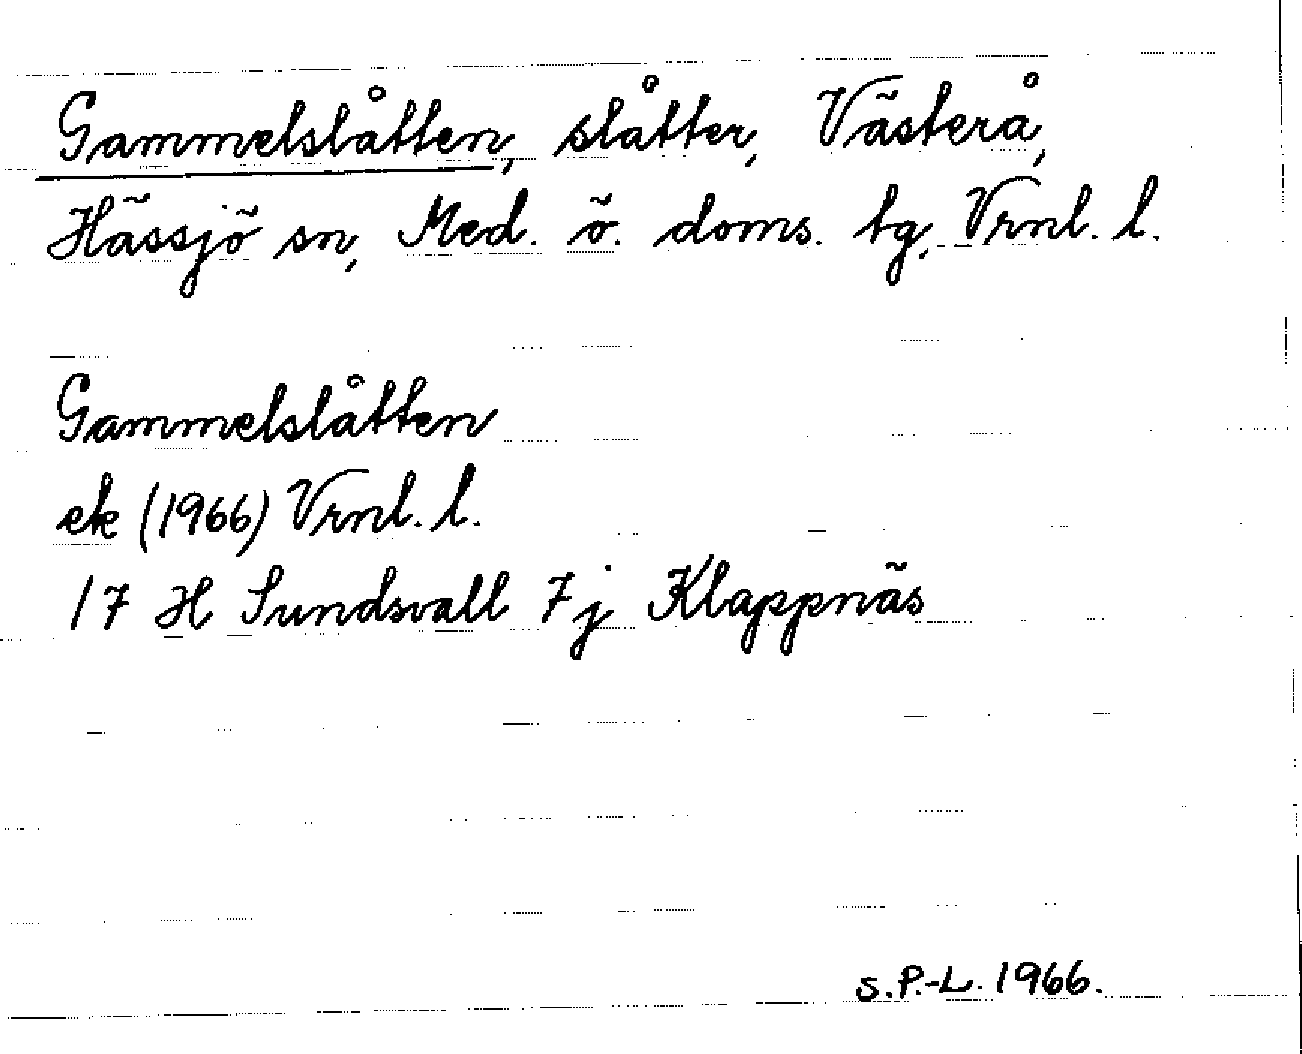 Gammelslåtten, slåtter, Västerå,
Hässjö sn, Med. ö. doms. tg, Vrnl. l.
Gammelslåtten
ek (1966) Vrnl. l.
17 H Sundsvall 7j Klappnäs
s.P.-L. 1966.